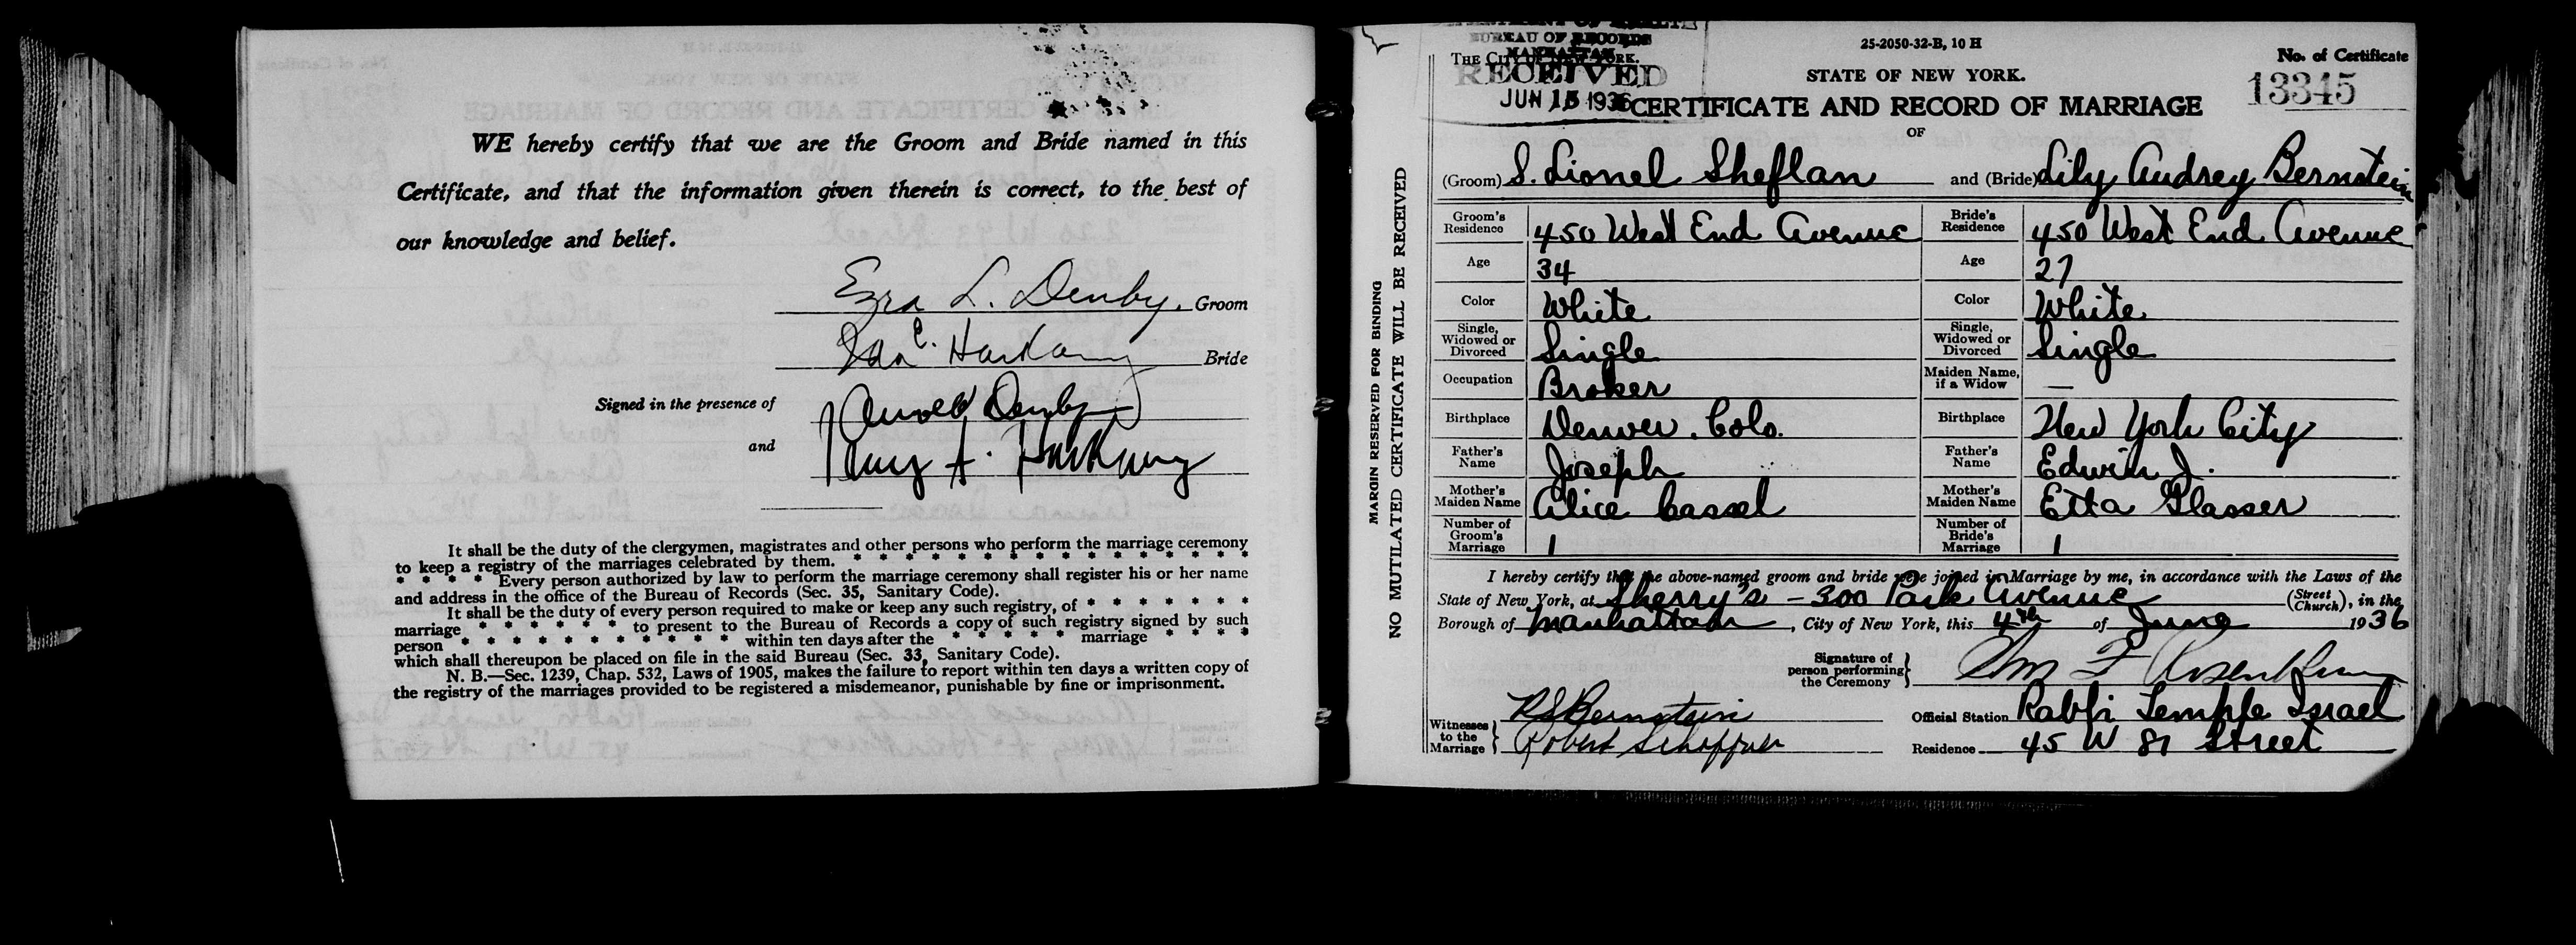 WE hereby certify that we are the Groom and Bride named in this
Certificate, and that the information given therein is correct, to the best of
our knowledge and belief.
Ezra L. Denby. Groom
Bride
Signed in the presence of Denby
and
It shall be the duty of the clergymen, magistrates and other persons who perform the marriage ceremony
to keep a registry of the marriages celebrated by them. * * * * * * * * * * * * * * * *
* * * * Every person authorized by law to perform the marriage ceremony shall register his or her name
and address in the office of the Bureau of Records (Sec. 35, Sanitary Code).
It shall be the duty of every person required to make or keep any such registry, of * * * * * * *
marriage * * * * * * * to present to the Bureau of Records a copy of such registry signed by such
person * * * * * * * * * * * * within ten days after the * * * * * marriage * * * *
which shall thereupon be placed on file in the said Bureau (Sec. 33, Sanitary Code).
N. B.—Sec. 1239, Chap. 532, Laws of 1905, makes the failure to report within ten days a written copy of
the registry of the marriages provided to be registered a misdemeanor, punishable by fine or imprisonment.
MARGIN RESERVED FOR BINDING
NO MUTILATED CERTIFICATE WILL BE RECEIVED
BUREAU OF RECORDS
MANHATTAN
THE CITY OF NEW YORK.
RECEIVED
JUN 15 1936
25-2050-32-B, 10 H
STATE OF NEW YORK.
No. of Certificate
13345
CERTIFICATE AND RECORD OF MARRIAGE
OF
(Groom) S. Lionel Sheflan and (Bride) Lily Audrey Bernstein
Groom's Residence 450 West End Avenue Bride's Residence 450 West End Avenue
Age 34 Age 27
Color White Color White
Single, Widowed or Divorced Single Single, Widowed or Divorced Single
Occupation Broker Maiden Name, if a Widow —
Birthplace Denver. Colo. Birthplace New York City
Father's Name Joseph Father's Name Edwin J.
Mother's Maiden Name Alice Cassel Mother's Maiden Name Etta Glasser
Number of Groom's Marriage 1 Number of Bride's Marriage 1
I hereby certify that the above-named groom and bride were joined in Marriage by me, in accordance with the Laws of the
State of New York, at Sherry's - 300 Park Avenue (Street Church), in the
Borough of Manhattan, City of New York, this 4th of June 1936
Signature of person performing the Ceremony Wm F Rosenblum
Witnesses to the Marriage
Bernstein
Robert
Official Station Rabbi Temple Israel
Residence 45 W 81 Street